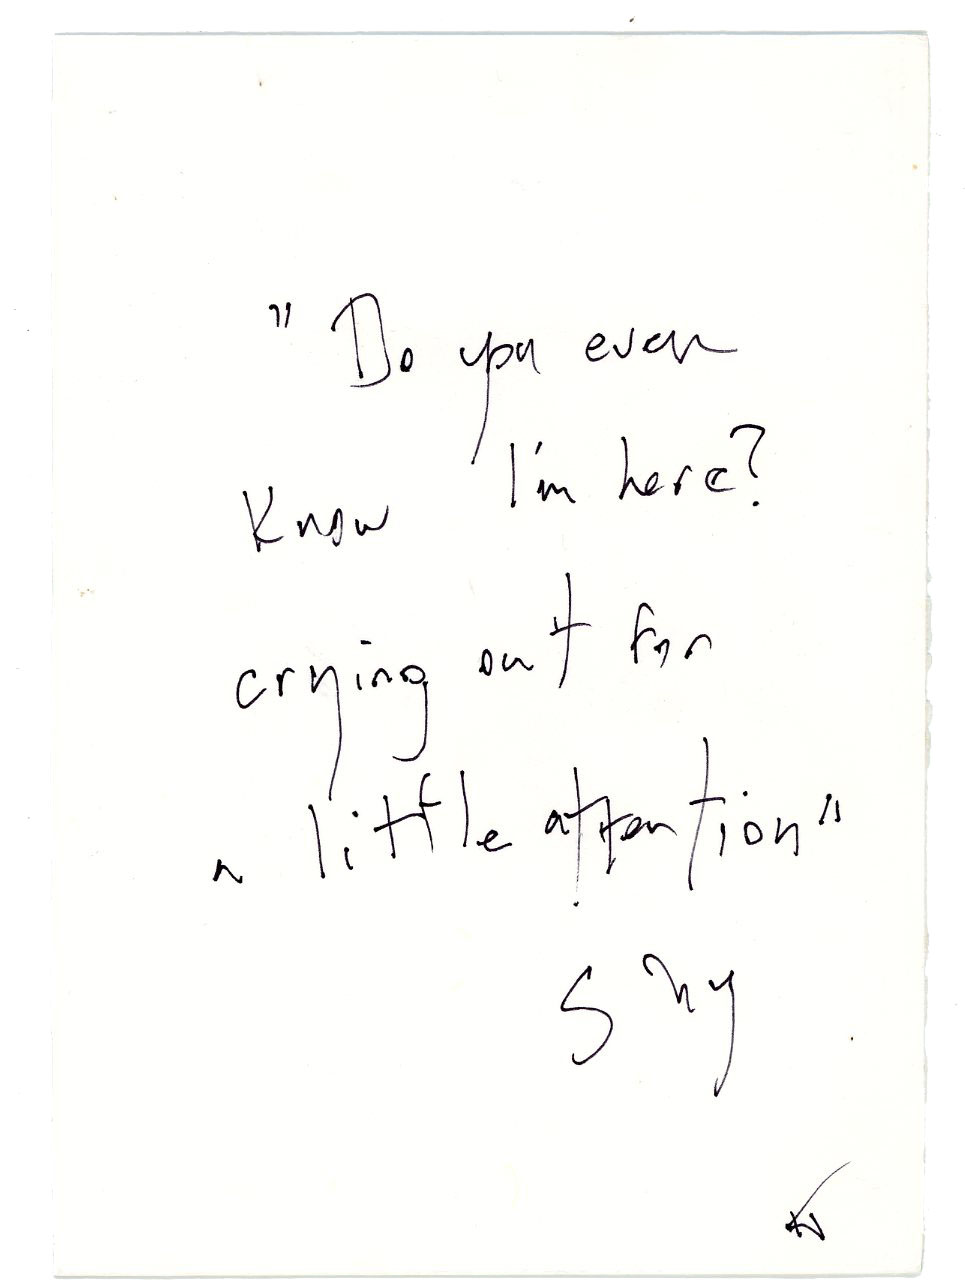 "Do you even
Know I'm here?
crying out for
a little attention"
Shy